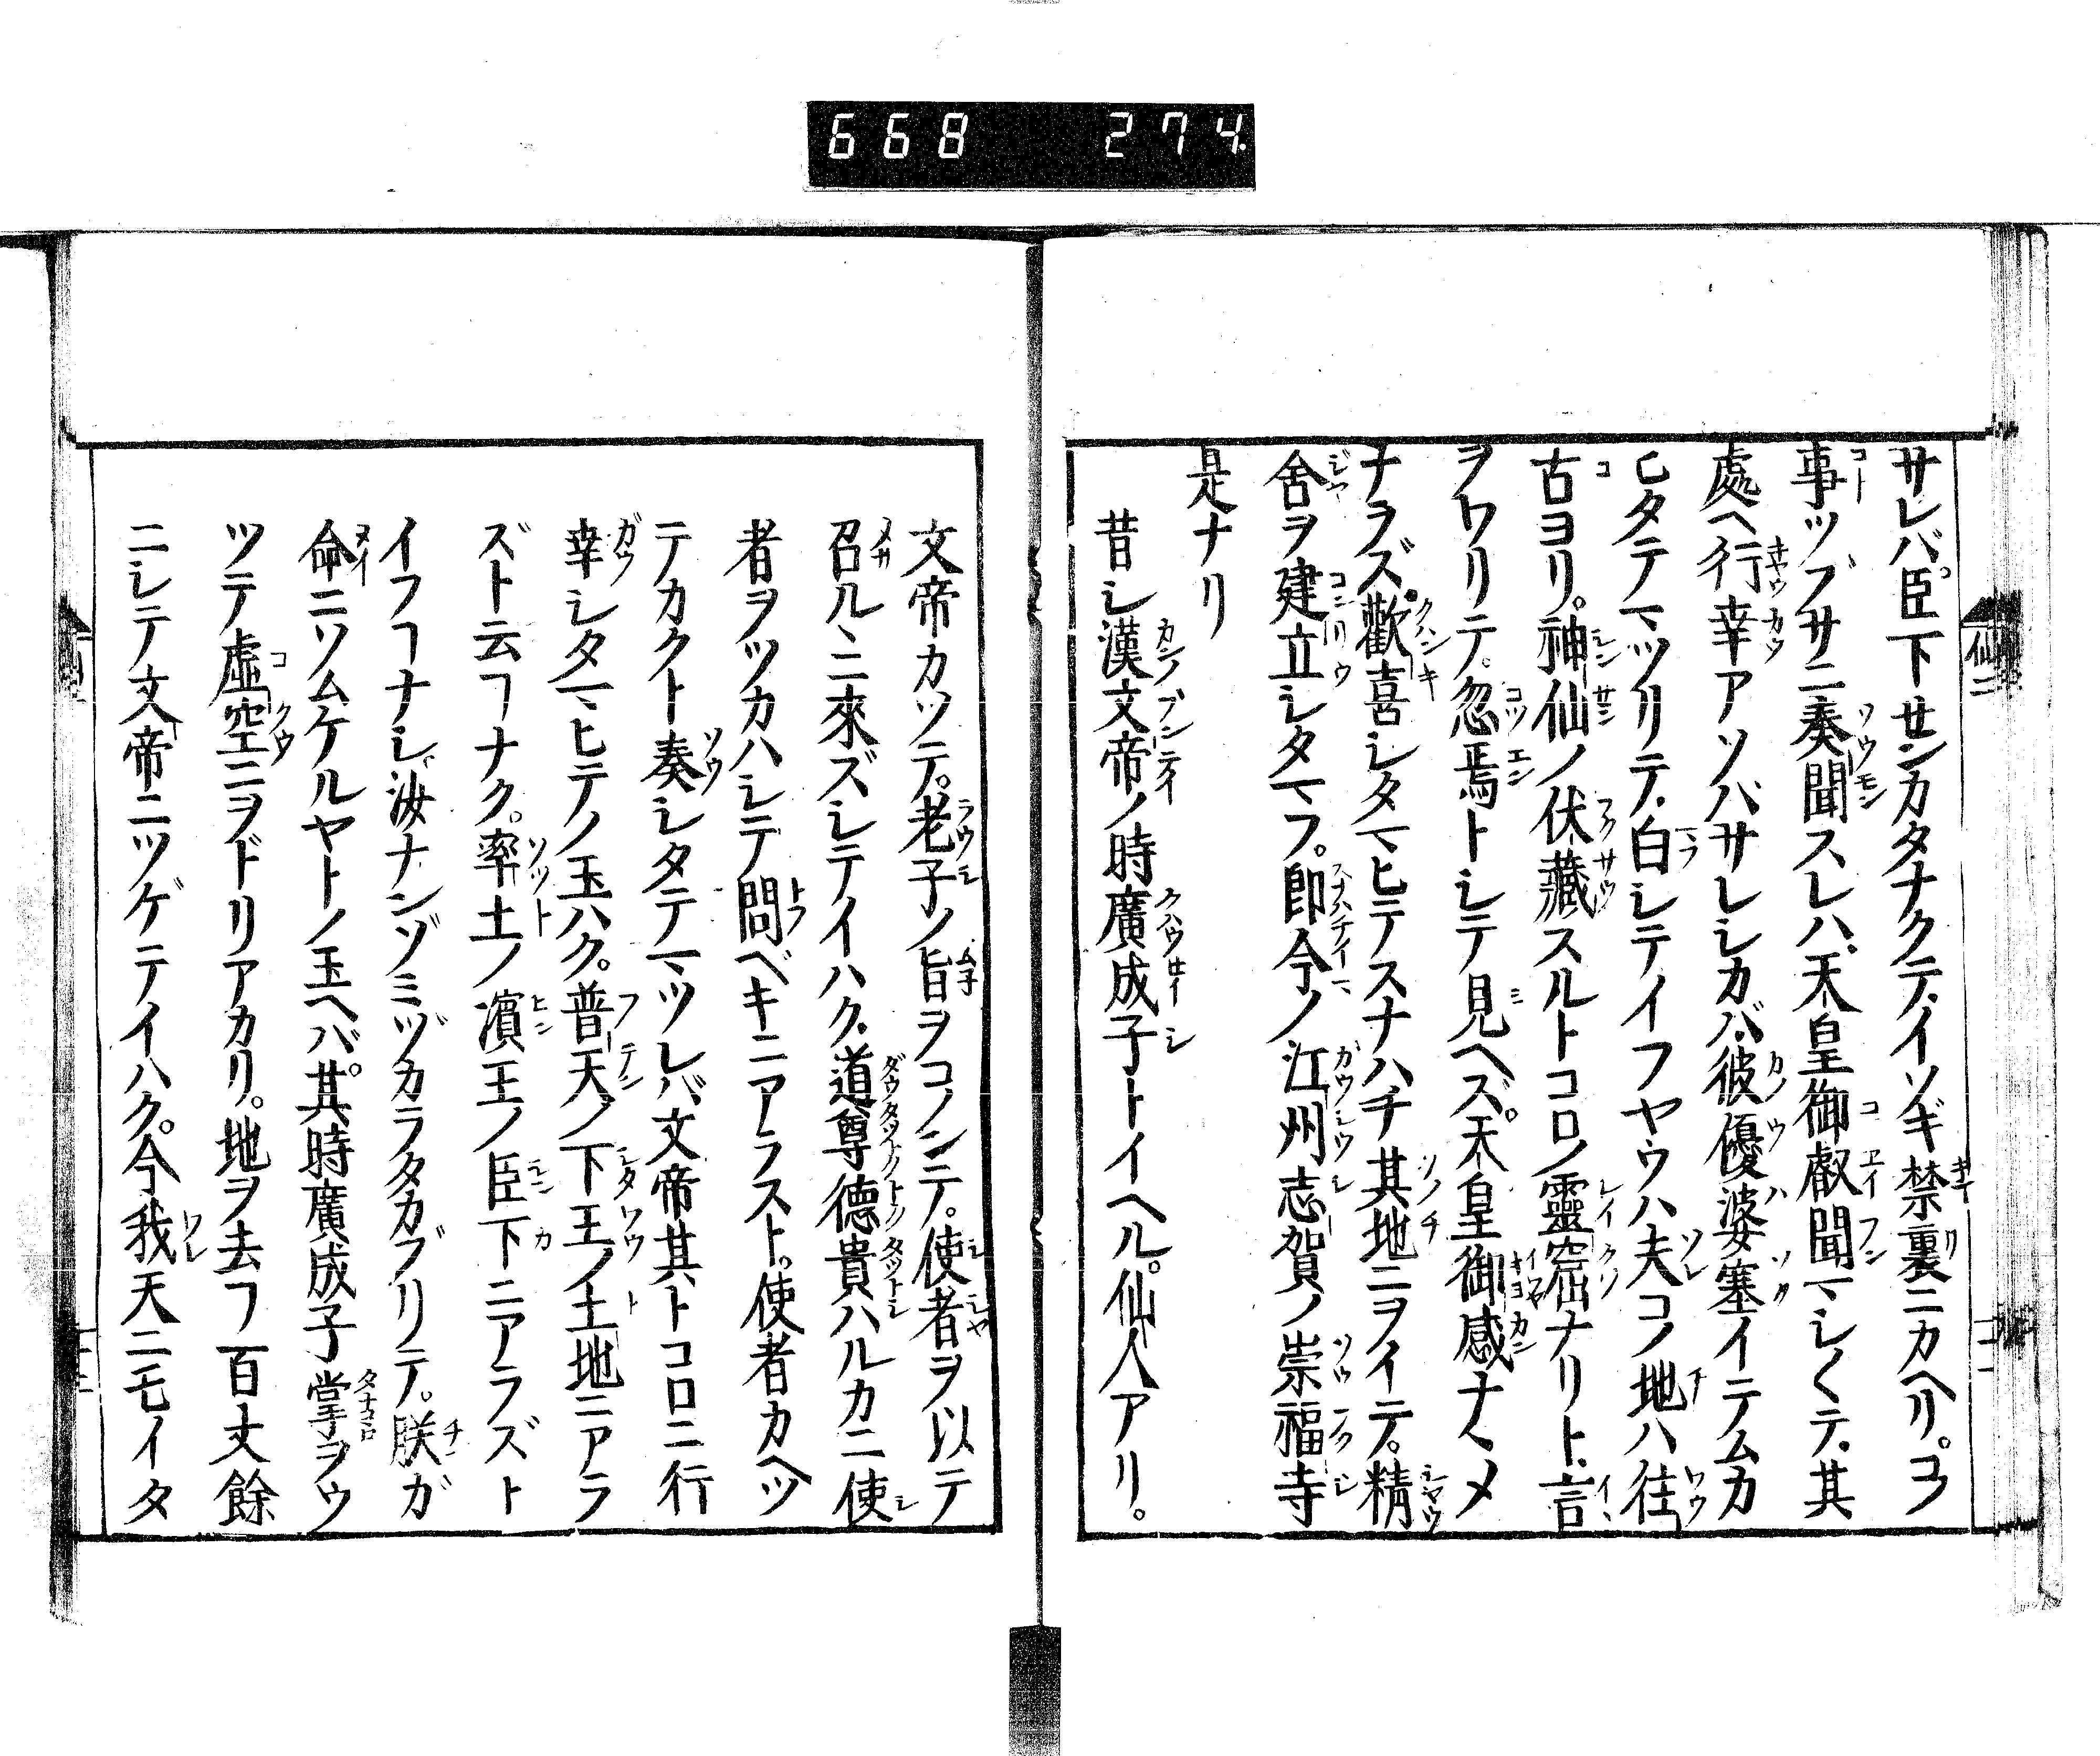 668 274.
サレバ。臣下せンカタナクテ。イソギ禁裏ニカヘリ。コノ
事ツブサニ奏聞スレハ、天皇御叡聞マシ〱テ、其
處へ行幸アソバサレシカバ、彼優婆塞イテムカ
ヒタテマツリテ、白シテイフヤウハ夫コノ地ハ往
古ヨリ。神仙ノ伏藏スルトコロノ靈窟ナリト、言
ヲワリテ。忽焉トシテ見ヘズ。天皇御感ナヽメ
ナラズ。歡喜シタマヒテスナハチ其地ニヲイテ。精
舎ヲ建立シタマフ。即今ノ江州志賀ノ崇福寺
是ナリ
昔シ漢文帝ノ時廣成子トイヘル。仙人アリ。
文帝カツテ。老子ノ旨ヲコノンテ。使者ヲ以テ
召ルヽニ來ズシテイハク、道尊德貴ハルカニ使
者ヲツカハシテ問ベキニアラスト。使者カヘツ
テカクト奏シタテマツレバ文帝其トコロニ行
幸シタマヒテノ玉ハク。普天ノ下王ノ土地ニアラ
ズト云フナク。率土ノ濵王ノ臣下ニアラズト
イフフナシ、汝ナンゾミヅカラタカブリテ。朕ガ
命ニソムケルヤトノ玉ヘバ。其時廣成子掌ヲウ
ツテ虛空ニヲドリアカリ。地ヲ去フ百丈餘
ニシテ文帝ニツゲテイハク。今我天ニモイタ